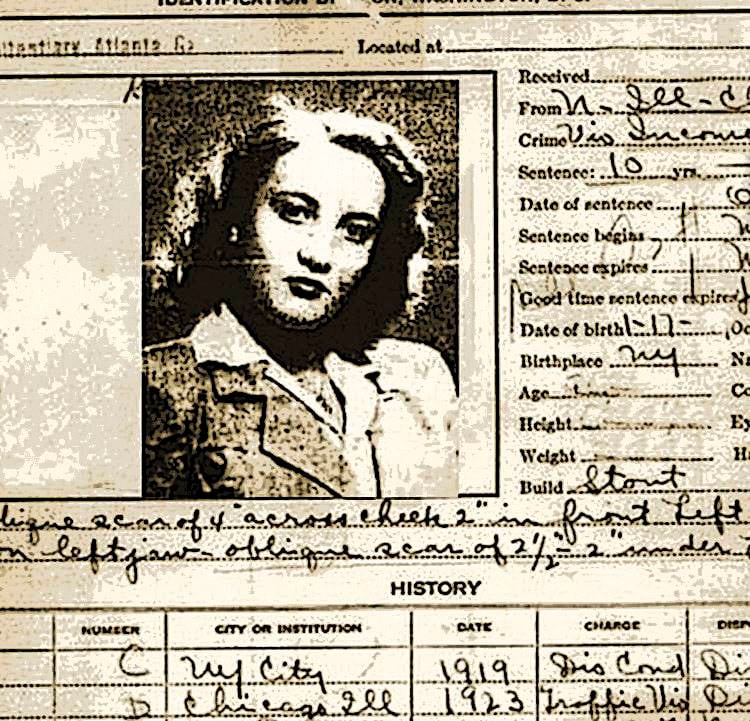 IDENTIFICATION
Atlanta Ga
Located at
Received
From N- Ill-
Crime Vio Income
Sentence: 10 yrs.
Date of sentence
Sentence begins
Sentence expires
Good time sentence expires
Date of birth 1-17-
Birthplace NY
Age
Height
Weight
Build Stout
scar of 4" across cheek 2" in front left
on left jaw - oblique scar of 2½" - 2" under
HISTORY
NUMBER CITY OR INSTITUTION DATE CHARGE
C NY City 1919 Dis Cond
D Chicago Ill 1923 Traffic Vio